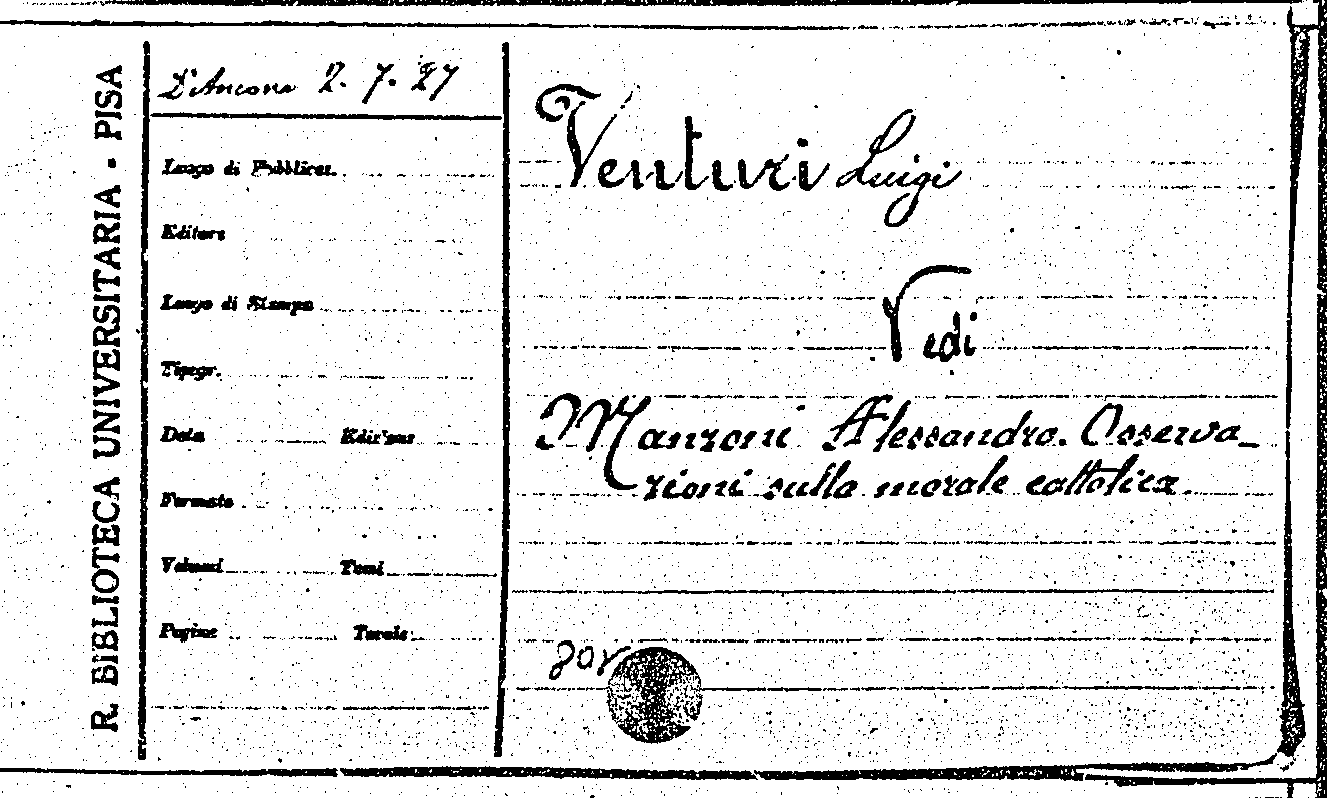 R. BIBLIOTECA UNIVERSITARIA - PISA
D'Ancona 2. 7. 27
Luogo di Pubblicaz.
Editore
Luogo di Stampa
Tipogr.
Data Edizione
Formato
Volumi Tomi
Pagine Tavole
Venturi Luigi
Vedi
Manzoni Alessandro. Osserva_
zioni sulla morale cattolica.